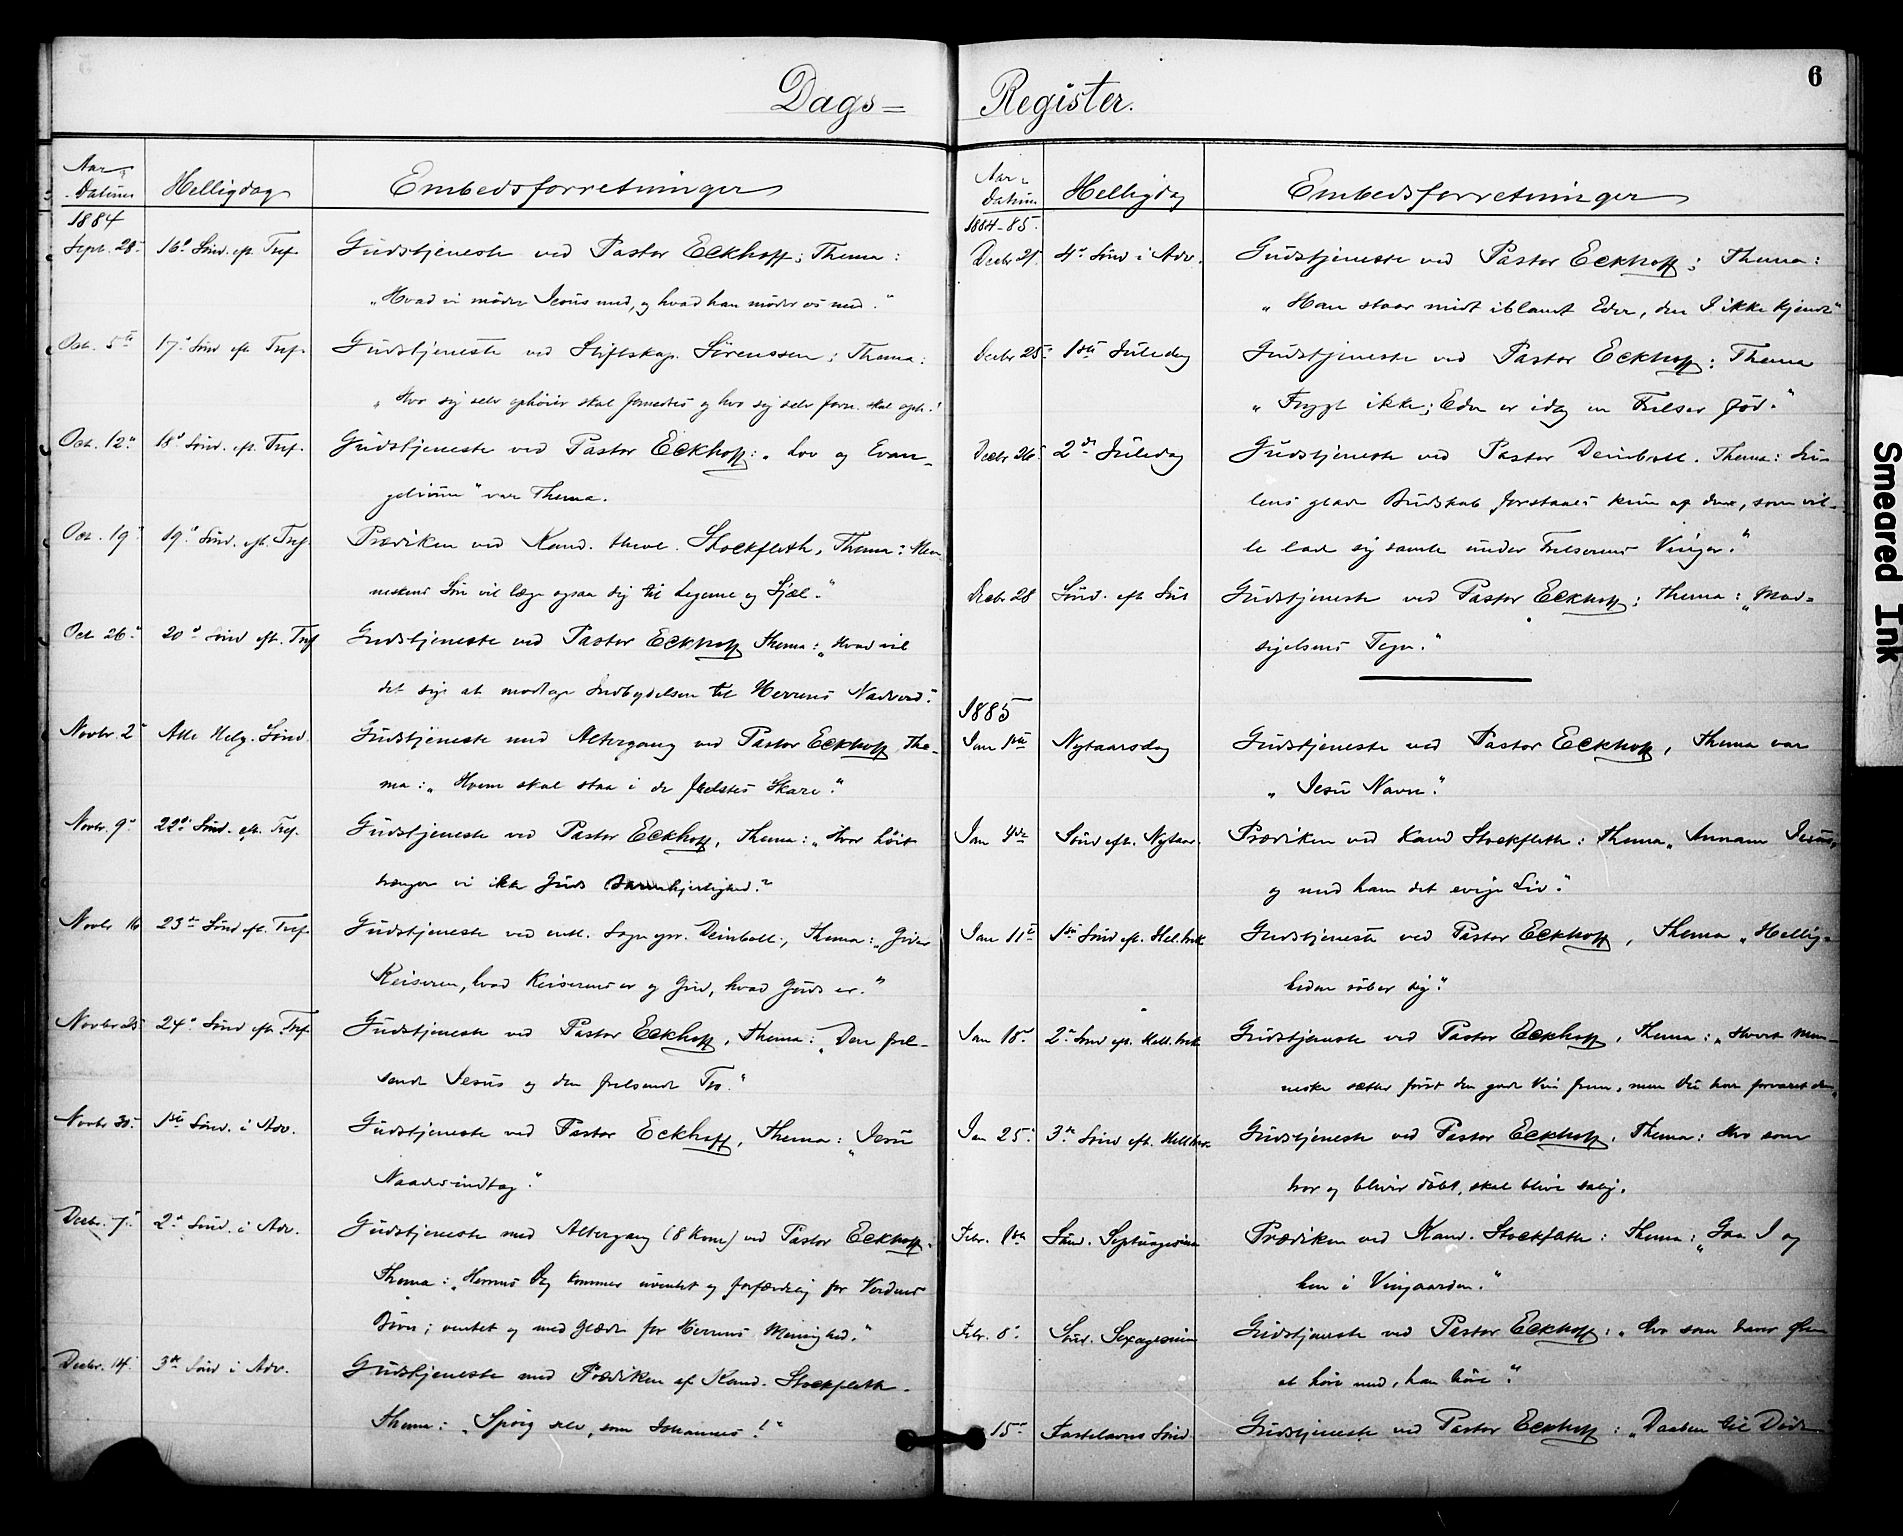 Dags=
Aar
Datum
Helligdag
Embedsforretninger
1884
Sept. 28. 16de Sönd. eft. Tref. Gudstjeneste ved Pastor Eckhoff; Thema:
„Hvad vi möder Jesus med, og hvad han möder os med."
Oct. 5te 17de Sönd. eft. Tref. Gudstjeneste ved Stiftskap. Sörenssen; Thema:
„Hvo sig selv ophöier skal fornedres og hvo sig selv forn. skal oph.!
Oct. 12te 18de Sönd. eft. Tref. Gudstjeneste ved Pastor Eckhoff: „Lov og Evan-
gelium" var Thema.
Oct. 19. 19de Sönd. eft. Tref. Prædiken ved Kand. theol. Stockfleth, Thema: Men-
neskens Sön vil læge ogsaa dig til Legeme og Sjæl."
Oct 26. 20de Sönd eft. Tref Gudstjeneste ved Pastor Eckhoff Thema: „Hvad vil
det sige at modtage Indbydelsen til Herrens Nadverd."
Novbr. 2. Alle Helg. Sönd. Gudstjeneste med Altergang ved Pastor Eckhoff The-
ma: „Hvem skal staa i de frelstes Skare."
Novbr. 9. 22de Sönd. eft. Tref. Gudstjeneste ved Pastor Eckhoff, Thema: „Hvor höit
trænger vi ikke Guds Barmhjertighed."
Novbr. 16 23de Sönd eft. Tref. Gudstjeneste ved Sogнepr. Deinboll, Thema: „Giver
Keiseren, hvad Keiserens er og Gud, hvad Guds er."
Novbr 23 24de Sönd eft. Tref. Gudstjeneste ved Pastor Eckhoff, Thema: „Den frel-
sende Jesus og den frelsende Tro."
Novbr 30. 1ste Sönd. i Adv. Gudstjeneste ved Pastor Eckhoff, Thema: „Jesu
Naadesindtog."
Decbr. 7. 2den Sönd. i Adv. Gudstjeneste med Altergang (8 Kom) ved Pastor Eckhoff.
Thema: „Herrens Dag kommer uventet og forfærdelig for Verdens
Börn; ventet og med Glæde for Herrens Menighed."
Decbr. 14. 3de Sönd i Adv. Gudstjeneste med Prædiken af Kand. Stockfleth.
Thema: „Spörg selv, som Johannes!"
Register.
6
Aar
Datum
Helligdag
Embedsforretninger
1884-85.
Decbr 21. 4de Sönd i Adv. Gudstjeneste ved Pastor Eckhoff; Thema:
„Han staar midt iblandt Eder, den I ikke kjende"
Decbr 25. 1ste Juledag Gudstjeneste ved Pastor Eckhoff; Thema
„Frygt ikke; Eder er idag en Frelser föd."
Decbr 26. 2den Juledag Gudstjeneste ved Pastor Deinboll. Thema: Ju-
lens glade Budskab forstaaes kun af dem, som vil-
le lade sig samle under Frelserens Vinger."
Decbr 28 Sönd. eft Jul Gudstjeneste ved Pastor Eckhoff; Thema: „Mod-
sigelsens Tegn."
1885
Jan 1ste Nytaarsdag Gudstjeneste ved Pastor Eckhoff, Thema var
„Jesu Navn."
Jan 4de Sönd eft. Nytaar. Prædiken ved Kand Stockfleth: Thema „Annam Jesus,
og med ham det evige Liv."
Jan 11te 1ste Sönd eft. Hel. trek Gudstjeneste ved Pastor Eckhoff, Thema „Hellig-
heden röber sig."
Jan 18. 2den Sönd eft. Hell. trek Gudstjeneste ved Pastor Eckhoff, Thema: „Hvert Men-
neske sætter först den gode Vin frem, men Du har forvaret den"
Jan 25. 3de Sönd eft. Hell. trek Gudstjeneste ved Pastor Eckhoff. Thema: Hvo som
tror og bliver döbt, skal blive salig.
Febr. 1ste Sönd. Septuagesima Prædiken ved Kand. Stockfleth: Thema: „Gaa I og
hen i Vingaarden."
Febr. 8. Sönd. Sexagesima Gudstjeneste ved Pastor Eckhoff: „Hvo som haver Øren
at höre med, han höre."
15. Fastelavns Sönd Gudstjeneste ved Pastor Eckhoff: „Daaben til Död
Smeared Ink